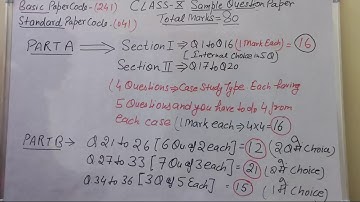 Basic Paper Code-(241) CLASS-X Sample Question Paper
Standard Paper Code-(041) Total Marks=80
PART A ⟹ Section I ⇒ Q1 to Q16 (1 Mark Each) = 16
[Internal choice in 5Q]
Section II ⇒ Q17 to Q20
(4 Questions ⇒ Case Study Type Each having
5 Questions and you have to do 4 from
each case (1 Mark each ⇒ 4x4=16
PART B → Q 21 to 26 [6 Qu of 2 each] = 12 (2Q में Choice)
Q 27 to 33 [7 Qu of 3 each] = 21 (2 में Choice)
Q 34 to 36 [3Q of 5 Each] = 15 (1 में Choice)